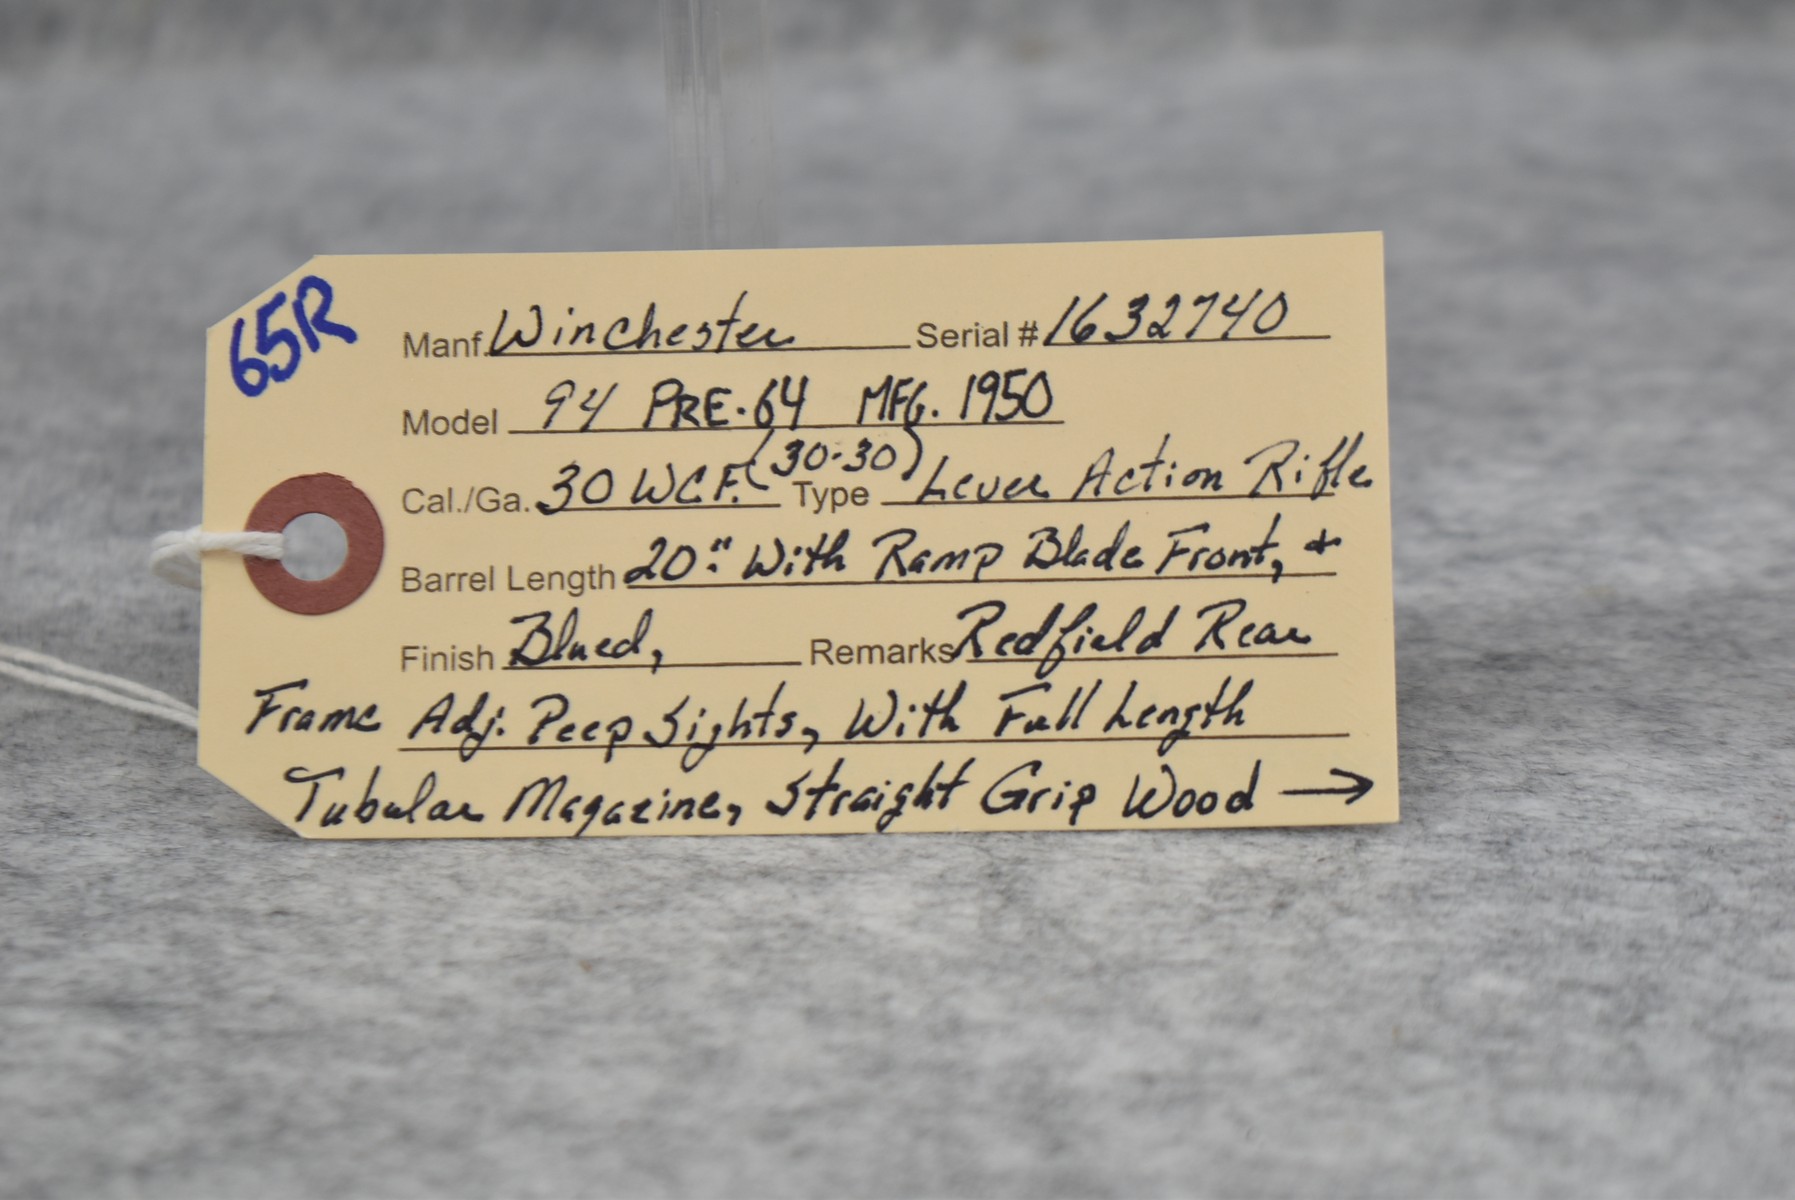 65R
Manf. Winchester Serial # 1632740
Model 94 PRE-64 MFG. 1950
Cal./Ga. 30 WCF. (30-30) Type Lever Action Rifle
Barrel Length 20" With Ramp Blade Front, +
Finish Blued, Remarks Redfield Rear
Frame Adj. Peep Sights, With Full Length
Tubular Magazine, Straight Grip Wood →